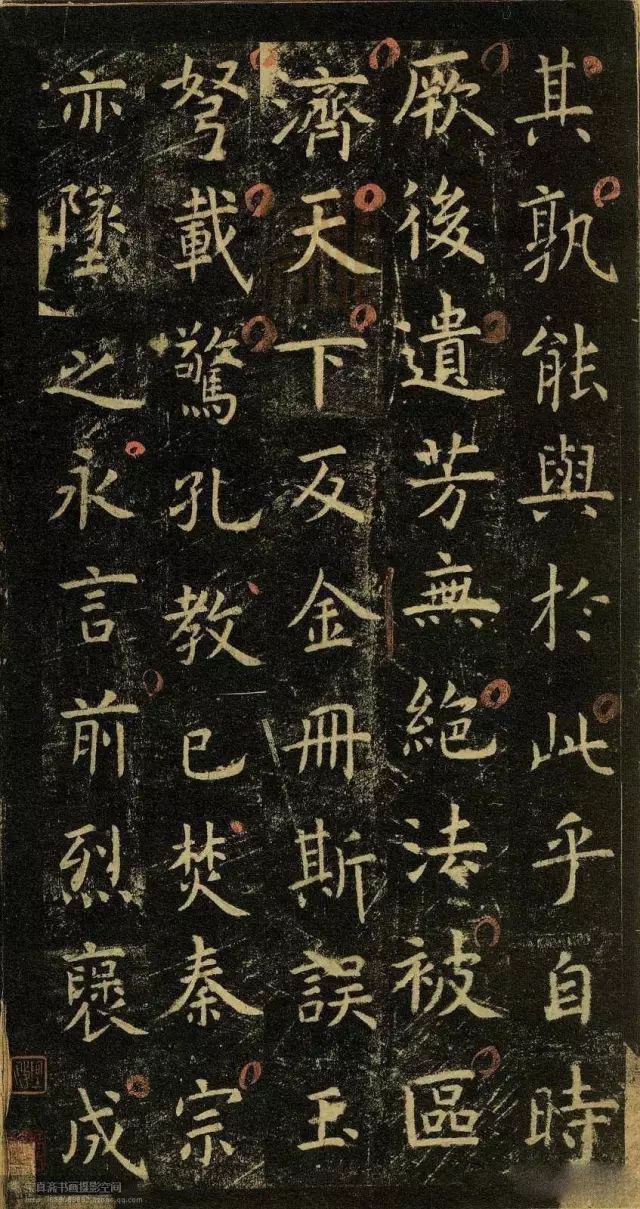 其孰能與於此乎自時
厥後遺芳無絶法被區
濟天下及金冊斯誤玉
弩載驚孔教已焚秦宗
亦墜之永言前烈褒成
真斋书画摄影空间